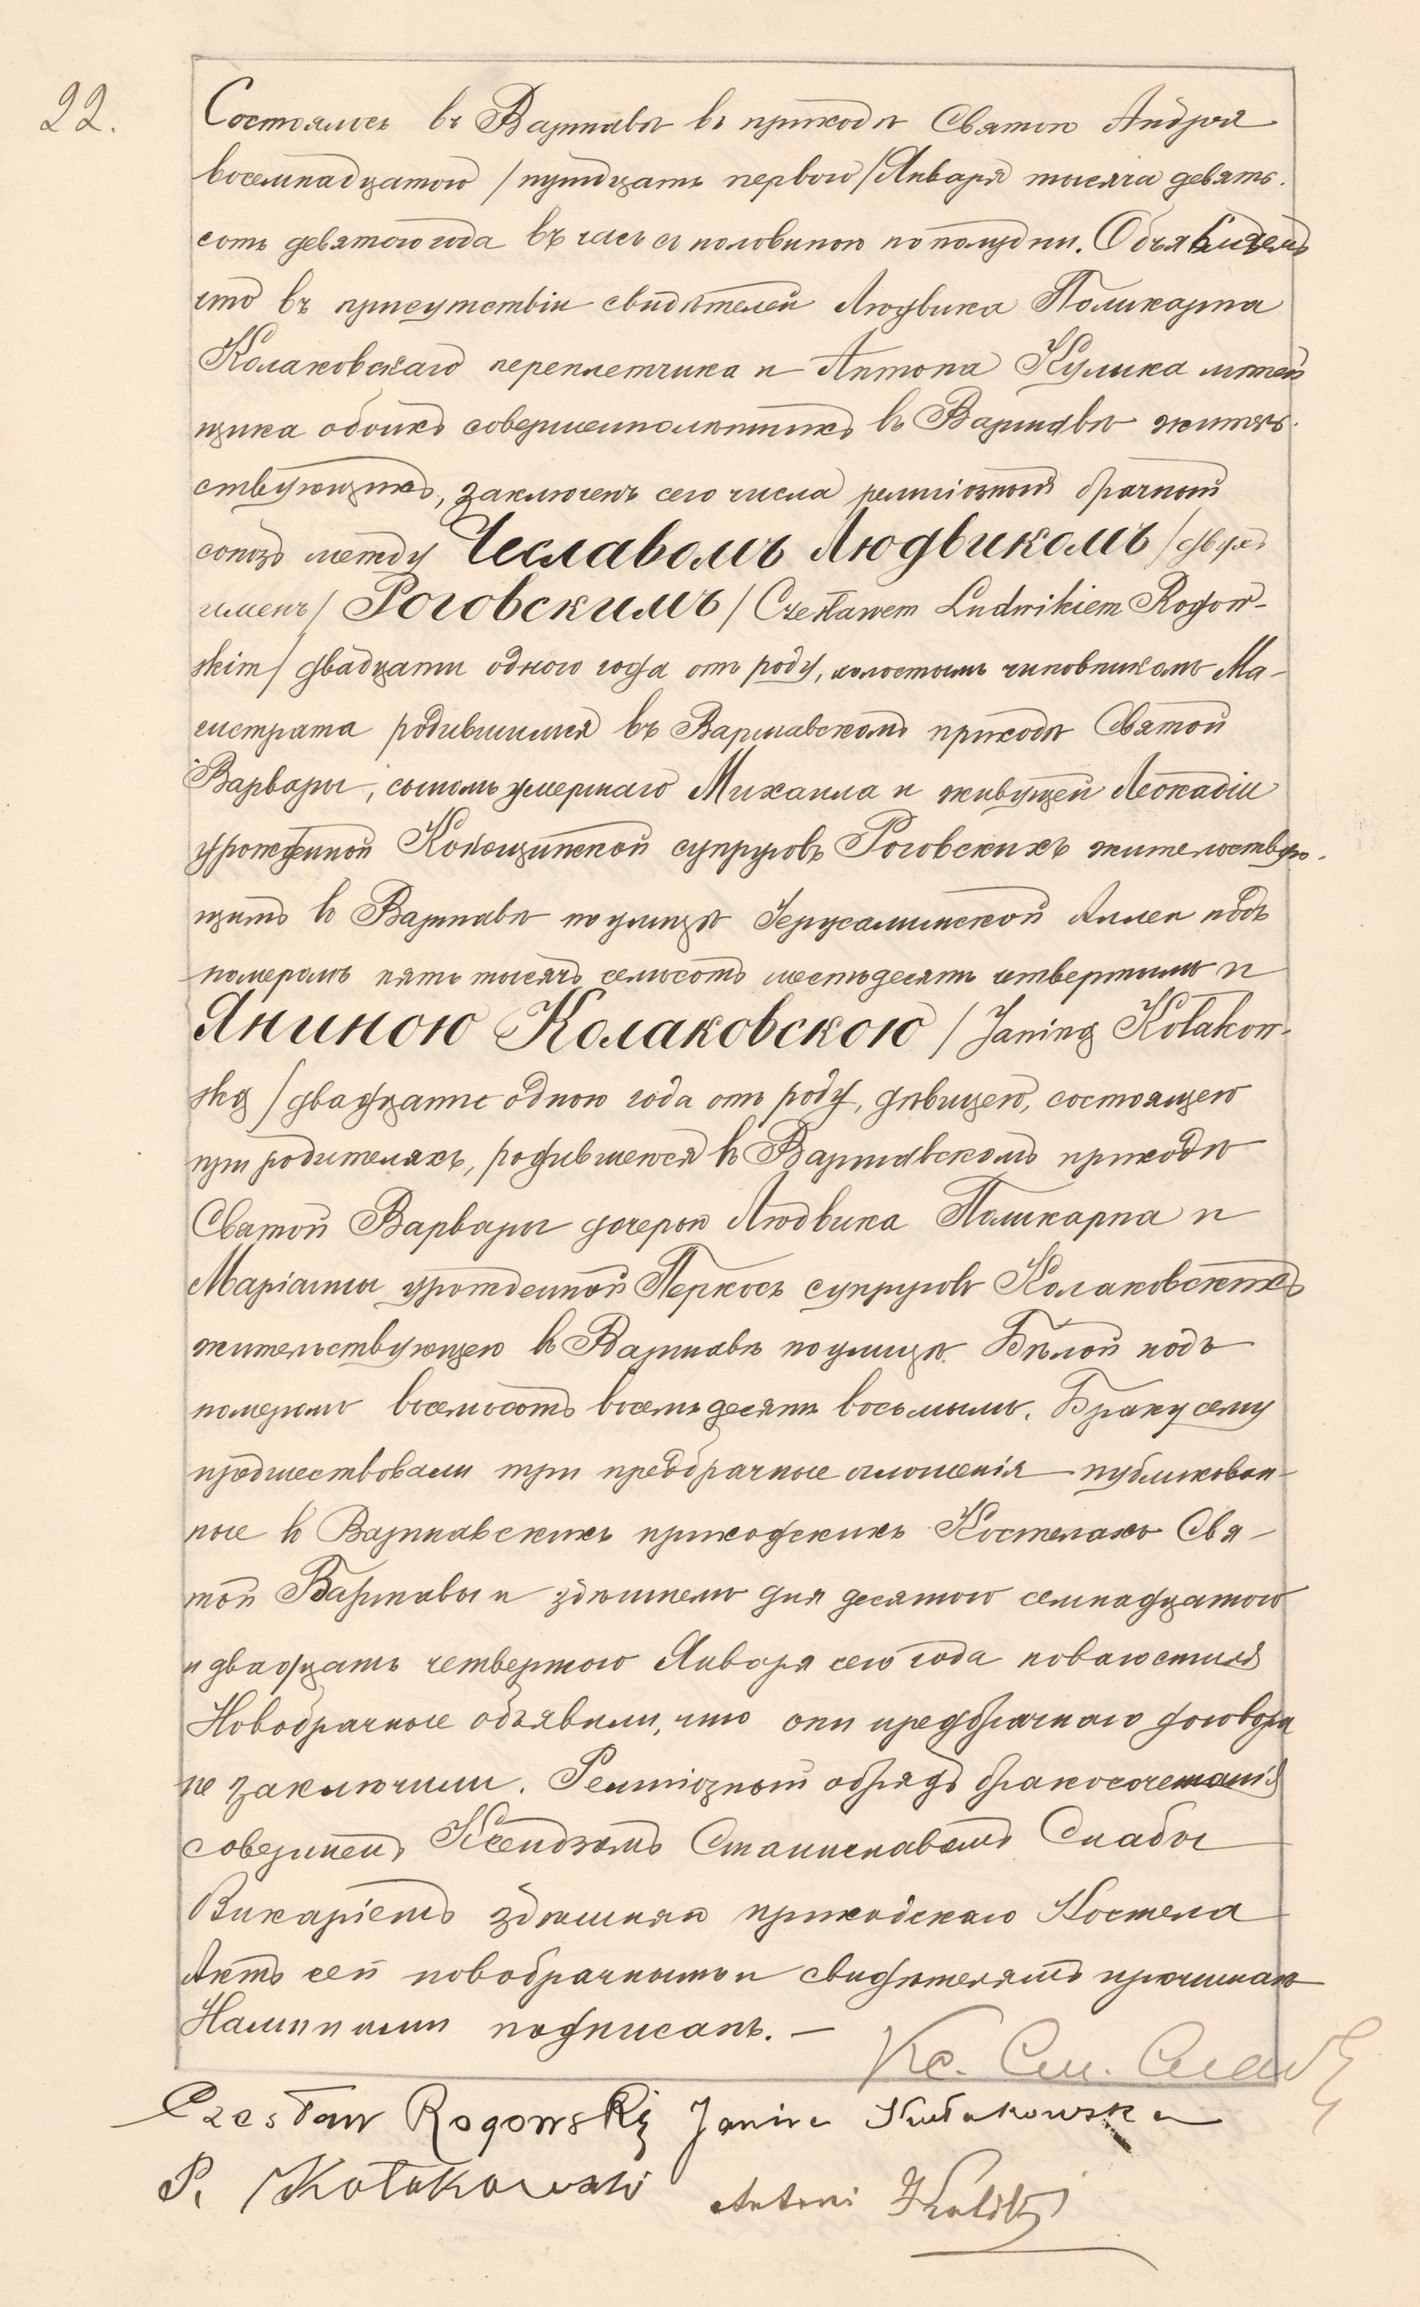 22.
Состоялось въ Варшавѣ въ приходѣ Святого Андрея
восемнадцатого /тридцать перваго/ Января тысяча девять-
сотъ девятого года въ часъ съ половиною по полудни. Объявляемъ
что въ присутствіи свидѣтелей Людвика Поликарпа
Колаковскаго переплетчика и Антона Кулика
щика обоихъ совершеннолѣтнихъ въ Варшавѣ житель-
ствующихъ, заключенъ сего числа религіозный брачный
союзъ между Чеславомъ Людвикомъ /двухъ
именъ/ Роговскимъ /Czesławem Ludwikiem Rogow-
skim/ двадцати одного года отъ роду, холостымъ чиновникомъ Ма-
гистрата родившимся въ Варшавскомъ приходѣ Святой
Варвары, сыномъ умершаго Михаила и живущей Леокадіи
урожденной супруговъ Роговскихъ жительствую-
щимъ въ Варшавѣ по улицѣ Іерусалимской Аллеи подъ
номеромъ пять тысячъ семьсотъ шестьдесятъ четвертымъ и
Яниною Колаковскою /Janiną Kołakow-
ską/ двадцати одного года отъ роду, дѣвицею, состоящею
при родителяхъ, родившеюся въ Варшавскомъ приходѣ
Святой Варвары дочерью Людвика Поликарпа и
Маріанны урожденной Перкосъ супруговъ Колаковскихъ
жительствующею въ Варшавѣ по улицѣ Бѣлой подъ
номеромъ восемьсотъ восемьдесятъ восьмымъ. Браку сему
предшествовали три предбрачные оглашенія публикован-
ные въ Варшавскихъ приходскихъ Костелахъ Свя-
той Варвары и здѣшнемъ дня десятого семнадцатого
и двадцать четвертого Января сего года новаго стиля
Новобрачные объявили, что они предбрачного договора
не заключили. Религіозный обрядъ бракосочетанія
совершенъ Ксендзомъ Станиславомъ Слабы
Викаріемъ здѣшняго приходскаго Костела
Актъ сей новобрачными и свидѣтелями прочитанъ
Нами и ими подписанъ. —
Кс. Ст.
Czesław Rogowski Janina Kołakowska
P. Kołakowski Antoni Kulik